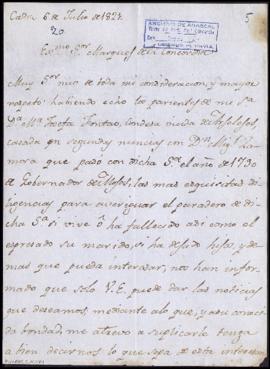 Cadiz 6 de Julio de 1824
5
20
ARCHIVO DE ABASCAL
Exmo. Sor. Marques de la Concordia
Muy Sor. mio de toda mi consideracion, y mayor
respeto: habiendo echo los parientes de mi Sa.
Da. Ma. Josefa Fontao, Condesa viuda de Argelejos,
casada en segundas nuncias con Dn. Migl. Za-
mora que pasó con dicha Sa. el año de 1790
de Gobernador de Moxos, las mas exquisitas di-
ligencias para averiguar el paradero de di-
cha Sa. si vive ó ha fallecido asi como el
espresado su marido, si ha dejado hijos, y de-
mas que pueda interesar, nos han infor-
mado que solo V.E. puede dar las noticias
que deseamos, mediante alo que, y asu conoci-
da bondad, me atrevo a suplicarle tenga
a bien decirnos lo que sepa de este interesan